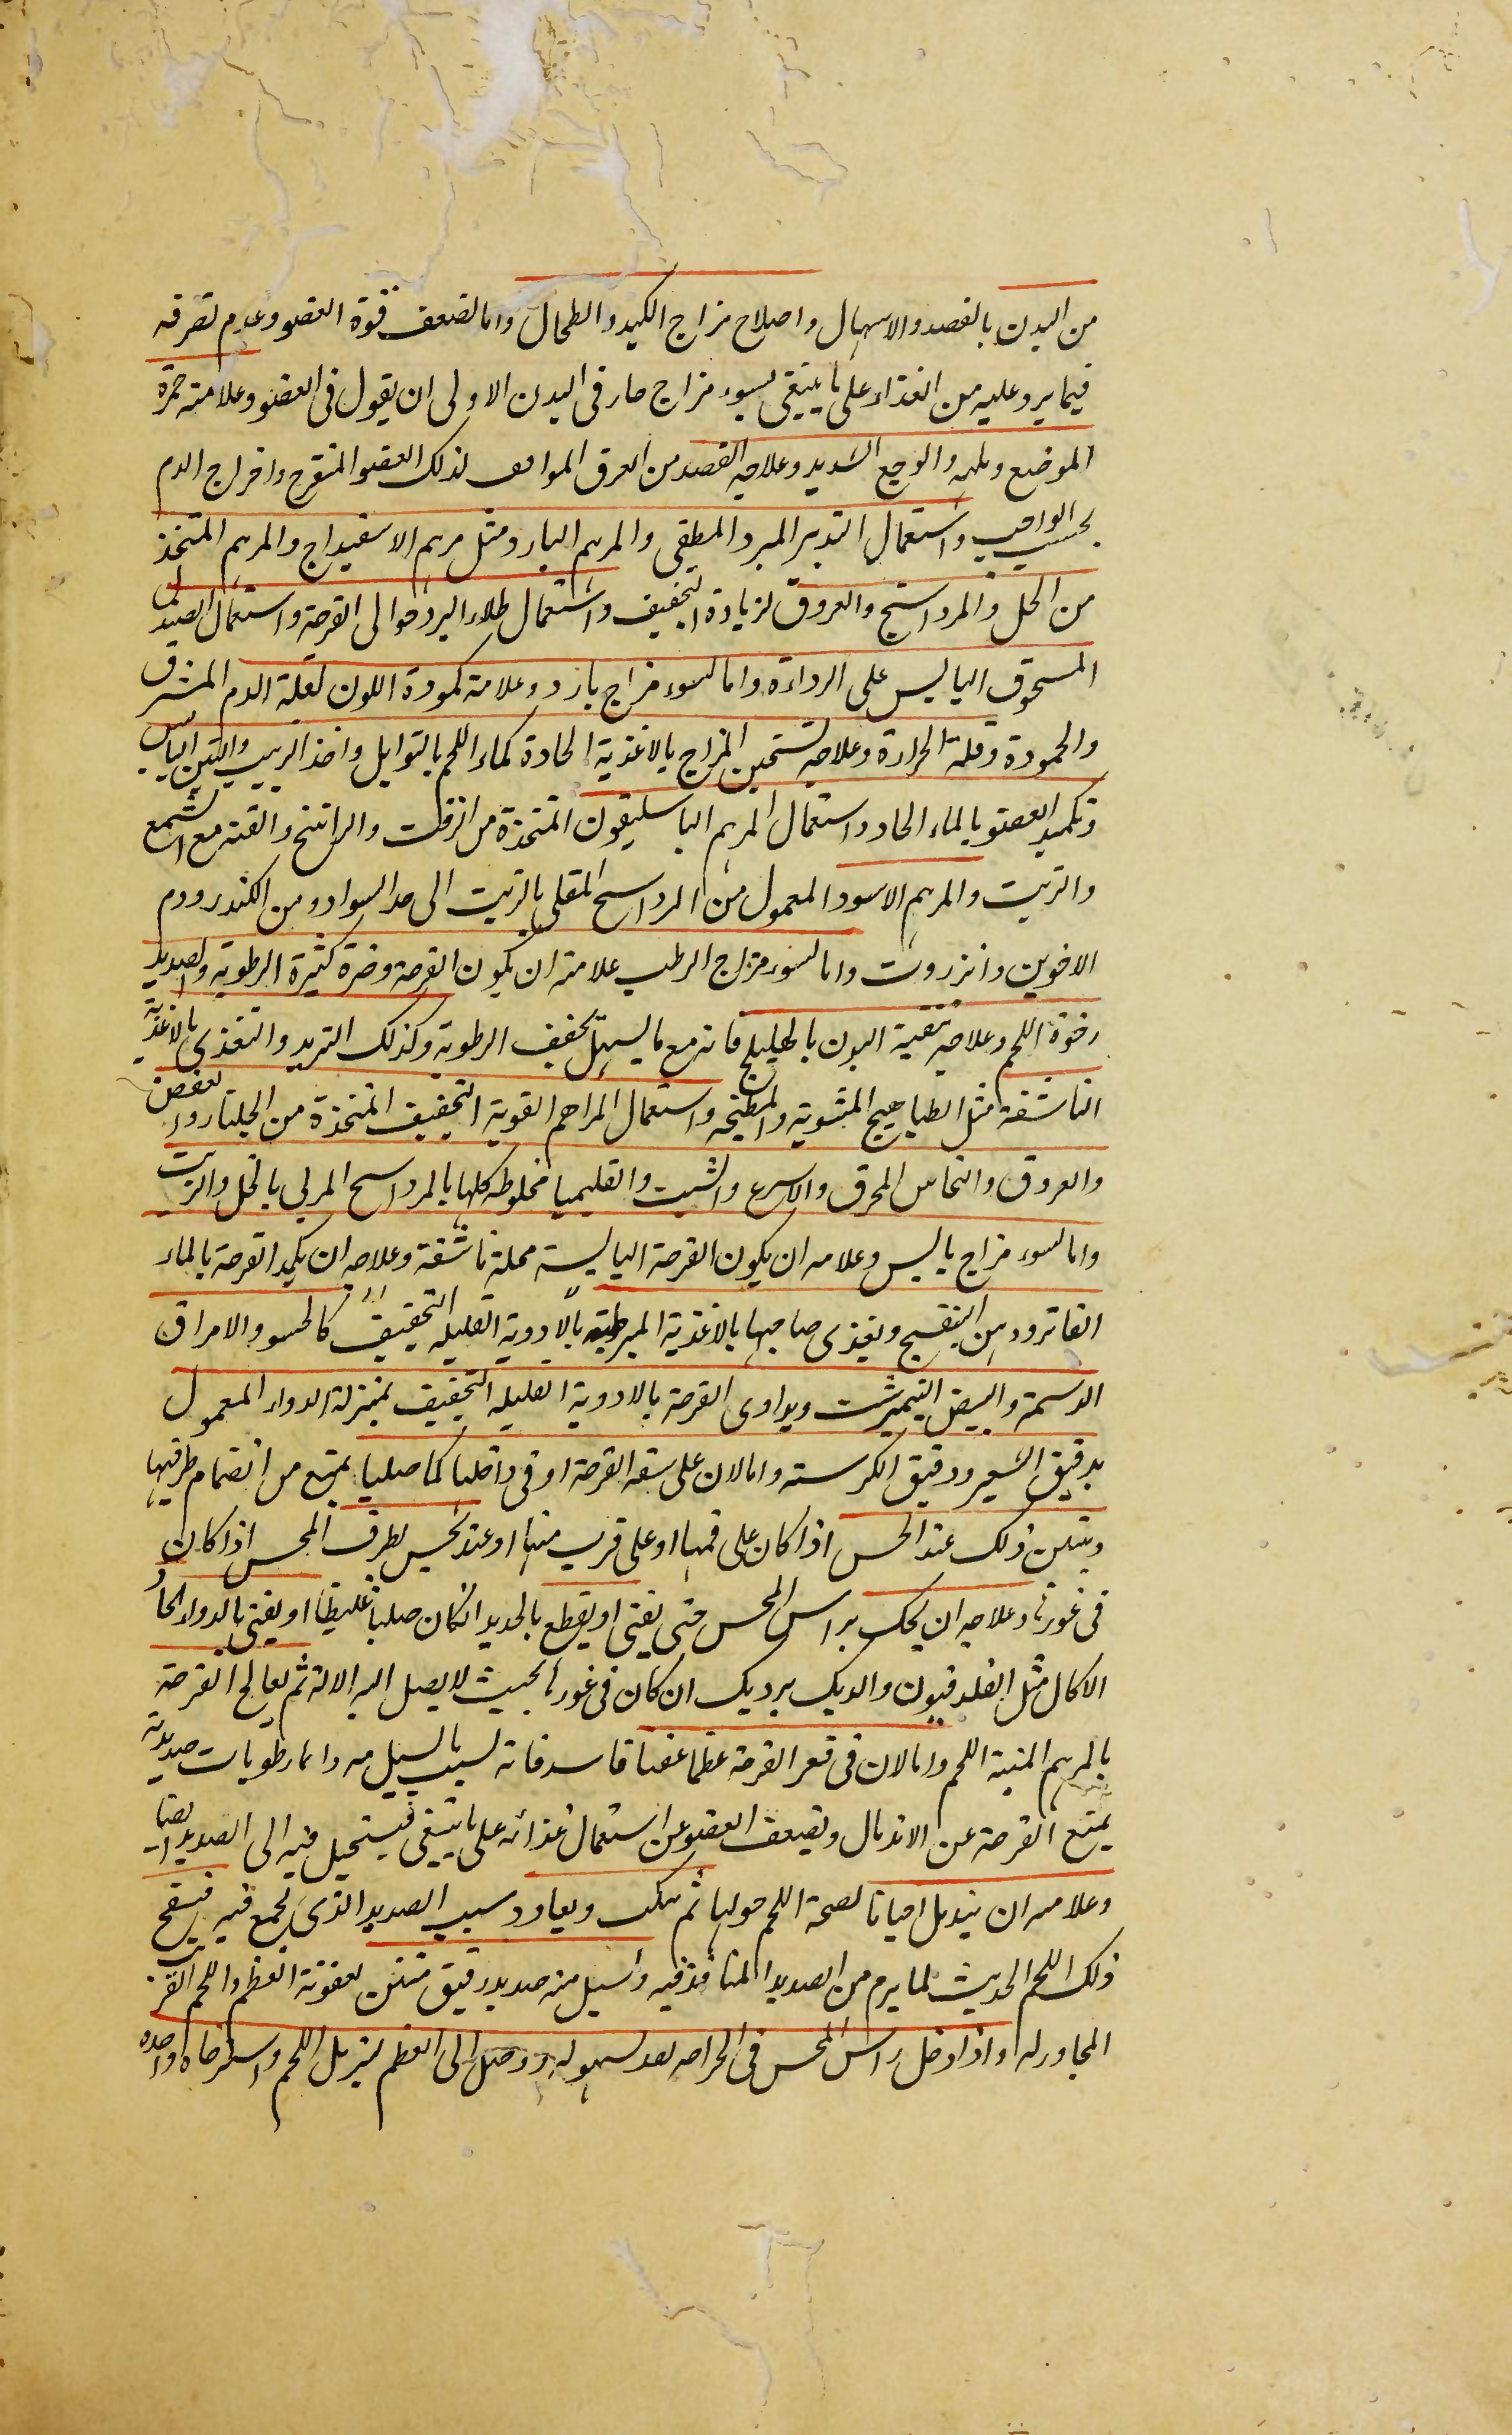 من البدن بالفصد والاسهال واصلاح مزاج الكبد والطحال واما لضعف قوة العضو وعدم تصرفه
فيما يرد عليه من الغذاء على ما ينبغي لسوء مزاج حار في البدن الاولى ان يقول في العضو وعلامته حمرة
الموضع ولهبه والوجع الشديد وعلاجه الفصد من العرق الموافق لذلك العضو المتقرح واخراج الدم
بحسب الواجب واستعمال التدبير المبرد المطفي والمرهم البارد مثل مرهم الاسفيداج والمرهم المتخذ
من الخل والمرداسنج والعروق لزيادة التجفيف واستعمال طلاء البرد حوالى القرحة واستعمال الصندل
المسحوق اليابس على الرداءة واما لسوء مزاج بارد وعلامته كمودة اللون لقلة الدم المشرق
والجمودة وقلة الحرارة وعلاجه تسخين المزاج بالاغذية الحادة كماء اللحم بالتوابل واخذ الزبيب والتين اليابس
وتكميد العضو بالماء الحار واستعمال المرهم الباسليقون المتخذة من الزفت والراتينج والقنه مع الشمع
والزيت والمرهم الاسود المعمول من المرداسنج المقلي بالزيت الى حد السواد ومن الكندر ودم
الاخوين وانزروت واما لسوء مزاج الرطب علامته ان يكون القرحة وضرة كثيرة الرطوبة والصديد
رخوة اللحم وعلاجه تنقية البدن بالهليلج فانه مع ما يسهل يجفف الرطوبة وكذلك التربد والتغذي بالاغذية
الناشفة مثل الطياهيج المشوية والمطبخة واستعمال المراهم القوية التجفيف المتخذة من الجلنار والعفص
والعروق والنحاس المحرق والاسرع والشبت والقليميا مخلوطه كلها بالمرداسنج المربى بالخل والزيت
واما لسوء مزاج يابس وعلامته ان يكون القرحة اليابسة محلة ناشفة وعلاجه ان يكمد القرحة بالماء
الفاتر ودهن البنفسج ويغذى صاحبها بالاغذية المرطبة بالادوية القليله التجفيف كالحسو والامراق
الدسمة والبيض النيمبرشت ويداوى القرحة بالادوية القليله التجفيف بمنزلة الدواء المعمول
بدقيق الشعير ودقيق الكرسنه واما لان على شفه القرحة او في داخلها لحما صلبا يمنع من انضمام طرفيها
ويتبين ذلك عند الحس اذا كان على فمها او على قريب منها او عند يحس بطرف المجس اذا كان
في غورها وعلاجه ان يحك براس المجس حتى يفنى او يقطع بالحديد ان كان صلبا غليظا او يفنى بالدواء الحاد
الاكال مثل الفلدفيون والديك برديك ان كان في غورها بحيث لا يصل اليه الالة ثم يعالج القرحة
بالمرهم المنبتة اللحم واما لان في قعر القرحة عظما عفنا فاسدا فانه بسبب ما يسيل منه دائما رطوبات صديدية
يمنع القرحة عن الاندمال ويضعف العضو عن استعمال غذائه على ما ينبغي فيستحيل فيه الى الصديد ايضا
وعلامته ان يندمل احيانا لصحة اللحم حولها ثم ينكث ويعاود سبب الصديد الذي يجمع فيه فينفتح
ذلك اللحم الحديث لما يرم من الصديد المنافذ فيه واسيل منه صديد رقيق منتن لعفونة العظم واللحم القريب
المجاور له واذا دخل راس المجس في الجراحه بعد سهوله ووصل الى العظم لتزبل اللحم واسترخاه واحده